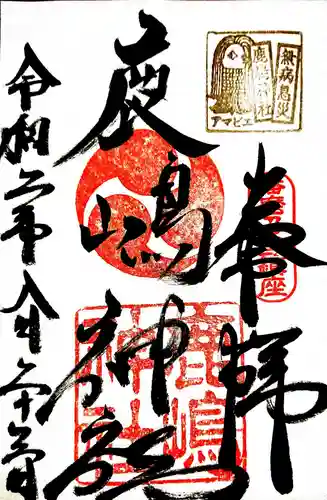 奉拝
鹿嶋神社
令和二年八月二十日
無病息災
鹿嶋神社
アマビエ
鹿嶋神社